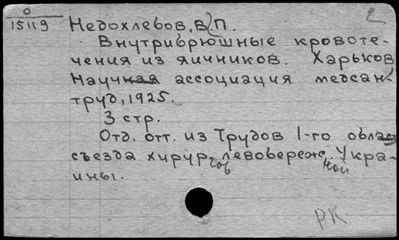 О
15119
Недохлебов, В. П.
2
Внутрибрюшные кровоте-
чения из яичников. Харьков
Научная ассоциация медсан
труд, 1925.
3 стр.
Отд. отт. из Трудов 1-го област
съезда хирургов левобереж ной Укра-
ины.
РК